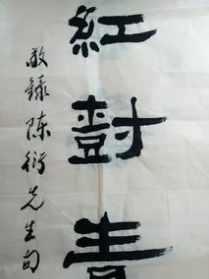 紅對青
敬錄陳衍先生句